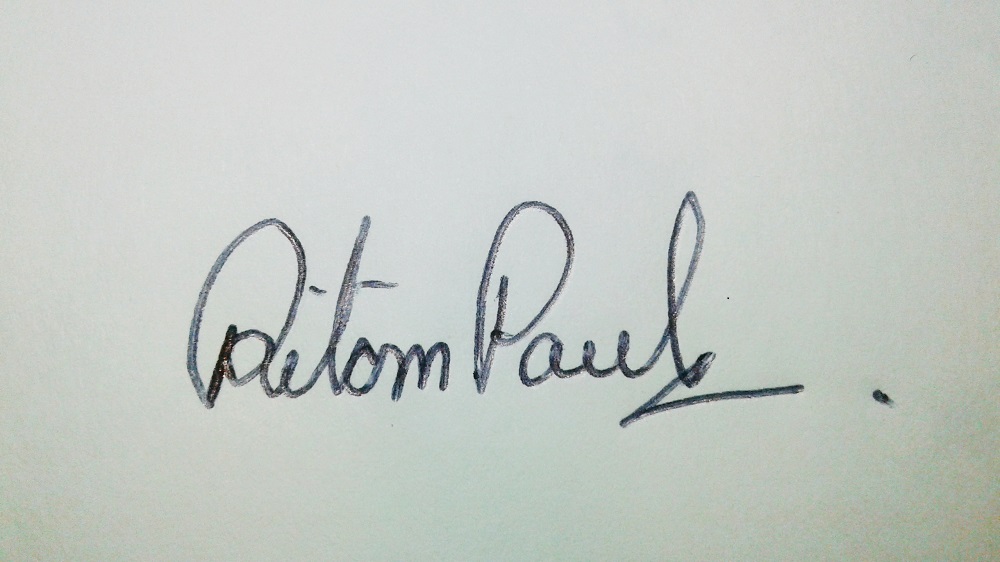 Ritom Paul.